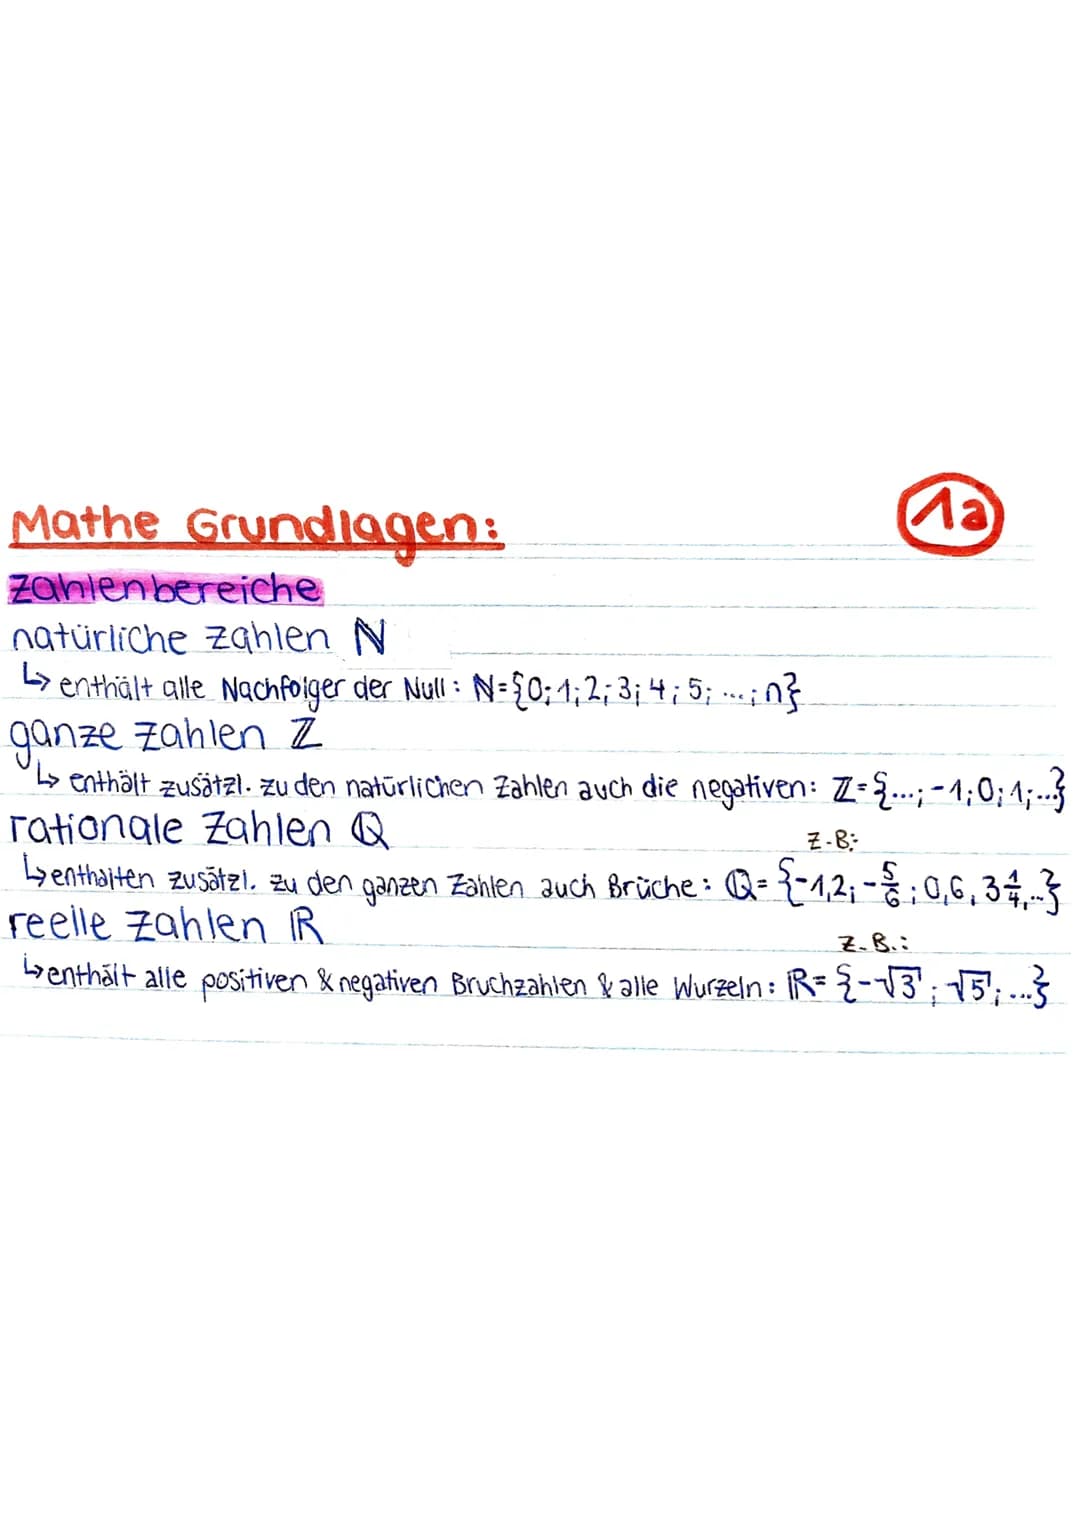 Mathe Grundlagen:
1a
Zahlenbereiche
natürliche Zahlen ℕ
↳ enthält alle Nachfolger der Null: ℕ={0; 1; 2; 3; 4; 5; ...; n}
ganze Zahlen ℤ
↳ enthält zusätzl. zu den natürlichen Zahlen auch die negativen: ℤ={...; -1; 0; 1; ...}
rationale Zahlen ℚ
z.B.:
↳ enthalten zusätzl. zu den ganzen Zahlen auch Brüche: ℚ={-1,2; -5/6; 0,6, 3 1/4, ...}
reelle Zahlen ℝ
z.B.:
↳ enthält alle positiven & negativen Bruchzahlen & alle Wurzeln: ℝ={-√3; √5; ...}